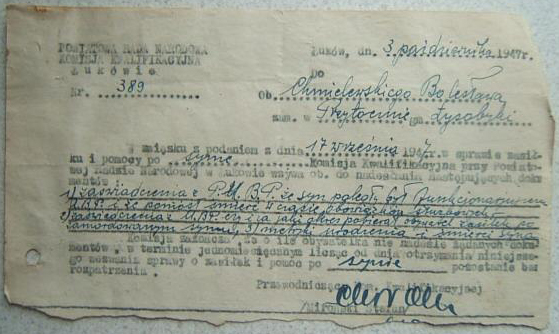 POWIATOWA RADA NARODOWA
KOMISJA KWALIFIKACYJNA
Łukowie
Nr. 389
Łuków, dn. 3 października 1947r.
Do
Ob. Chmielewskiego Bolesława
zam. w Przytoczno gm. Łysobyki
W związku z podaniem z dnia 17 września 1947 w sprawie zasił-
ku i pomocy po synie Komisja Kwalifikacyjna przy Powiato-
wej Radzie Narodowej w Łukowie wzywa ob. do nadesłania następujących doku-
mentów
1) zaświadczenia z P.U.B.P. że syn poległy był funkcjonariuszem
U.B.P. i że poniósł śmierć w czasie obowiązków służbowych
2) zaświadczenia z U.B.P. czy i za jaki okres pobierał obywatel zasiłek po
zamordowanym synu, 3) metryki urodzenia i śmierci syna
Komisja zaznacza, że o ile obywatelka nie nadeśle żądanych doku-
mentów, w terminie jednomiesięcznym licząc od dnia otrzymania niniejsze-
go wezwania sprawy o zasiłek i pomoc po synie pozostanie bez
rozpatrzenia.
Przewodniczący Kom. Kwalifikacyjnej
/Mironski Stefan/